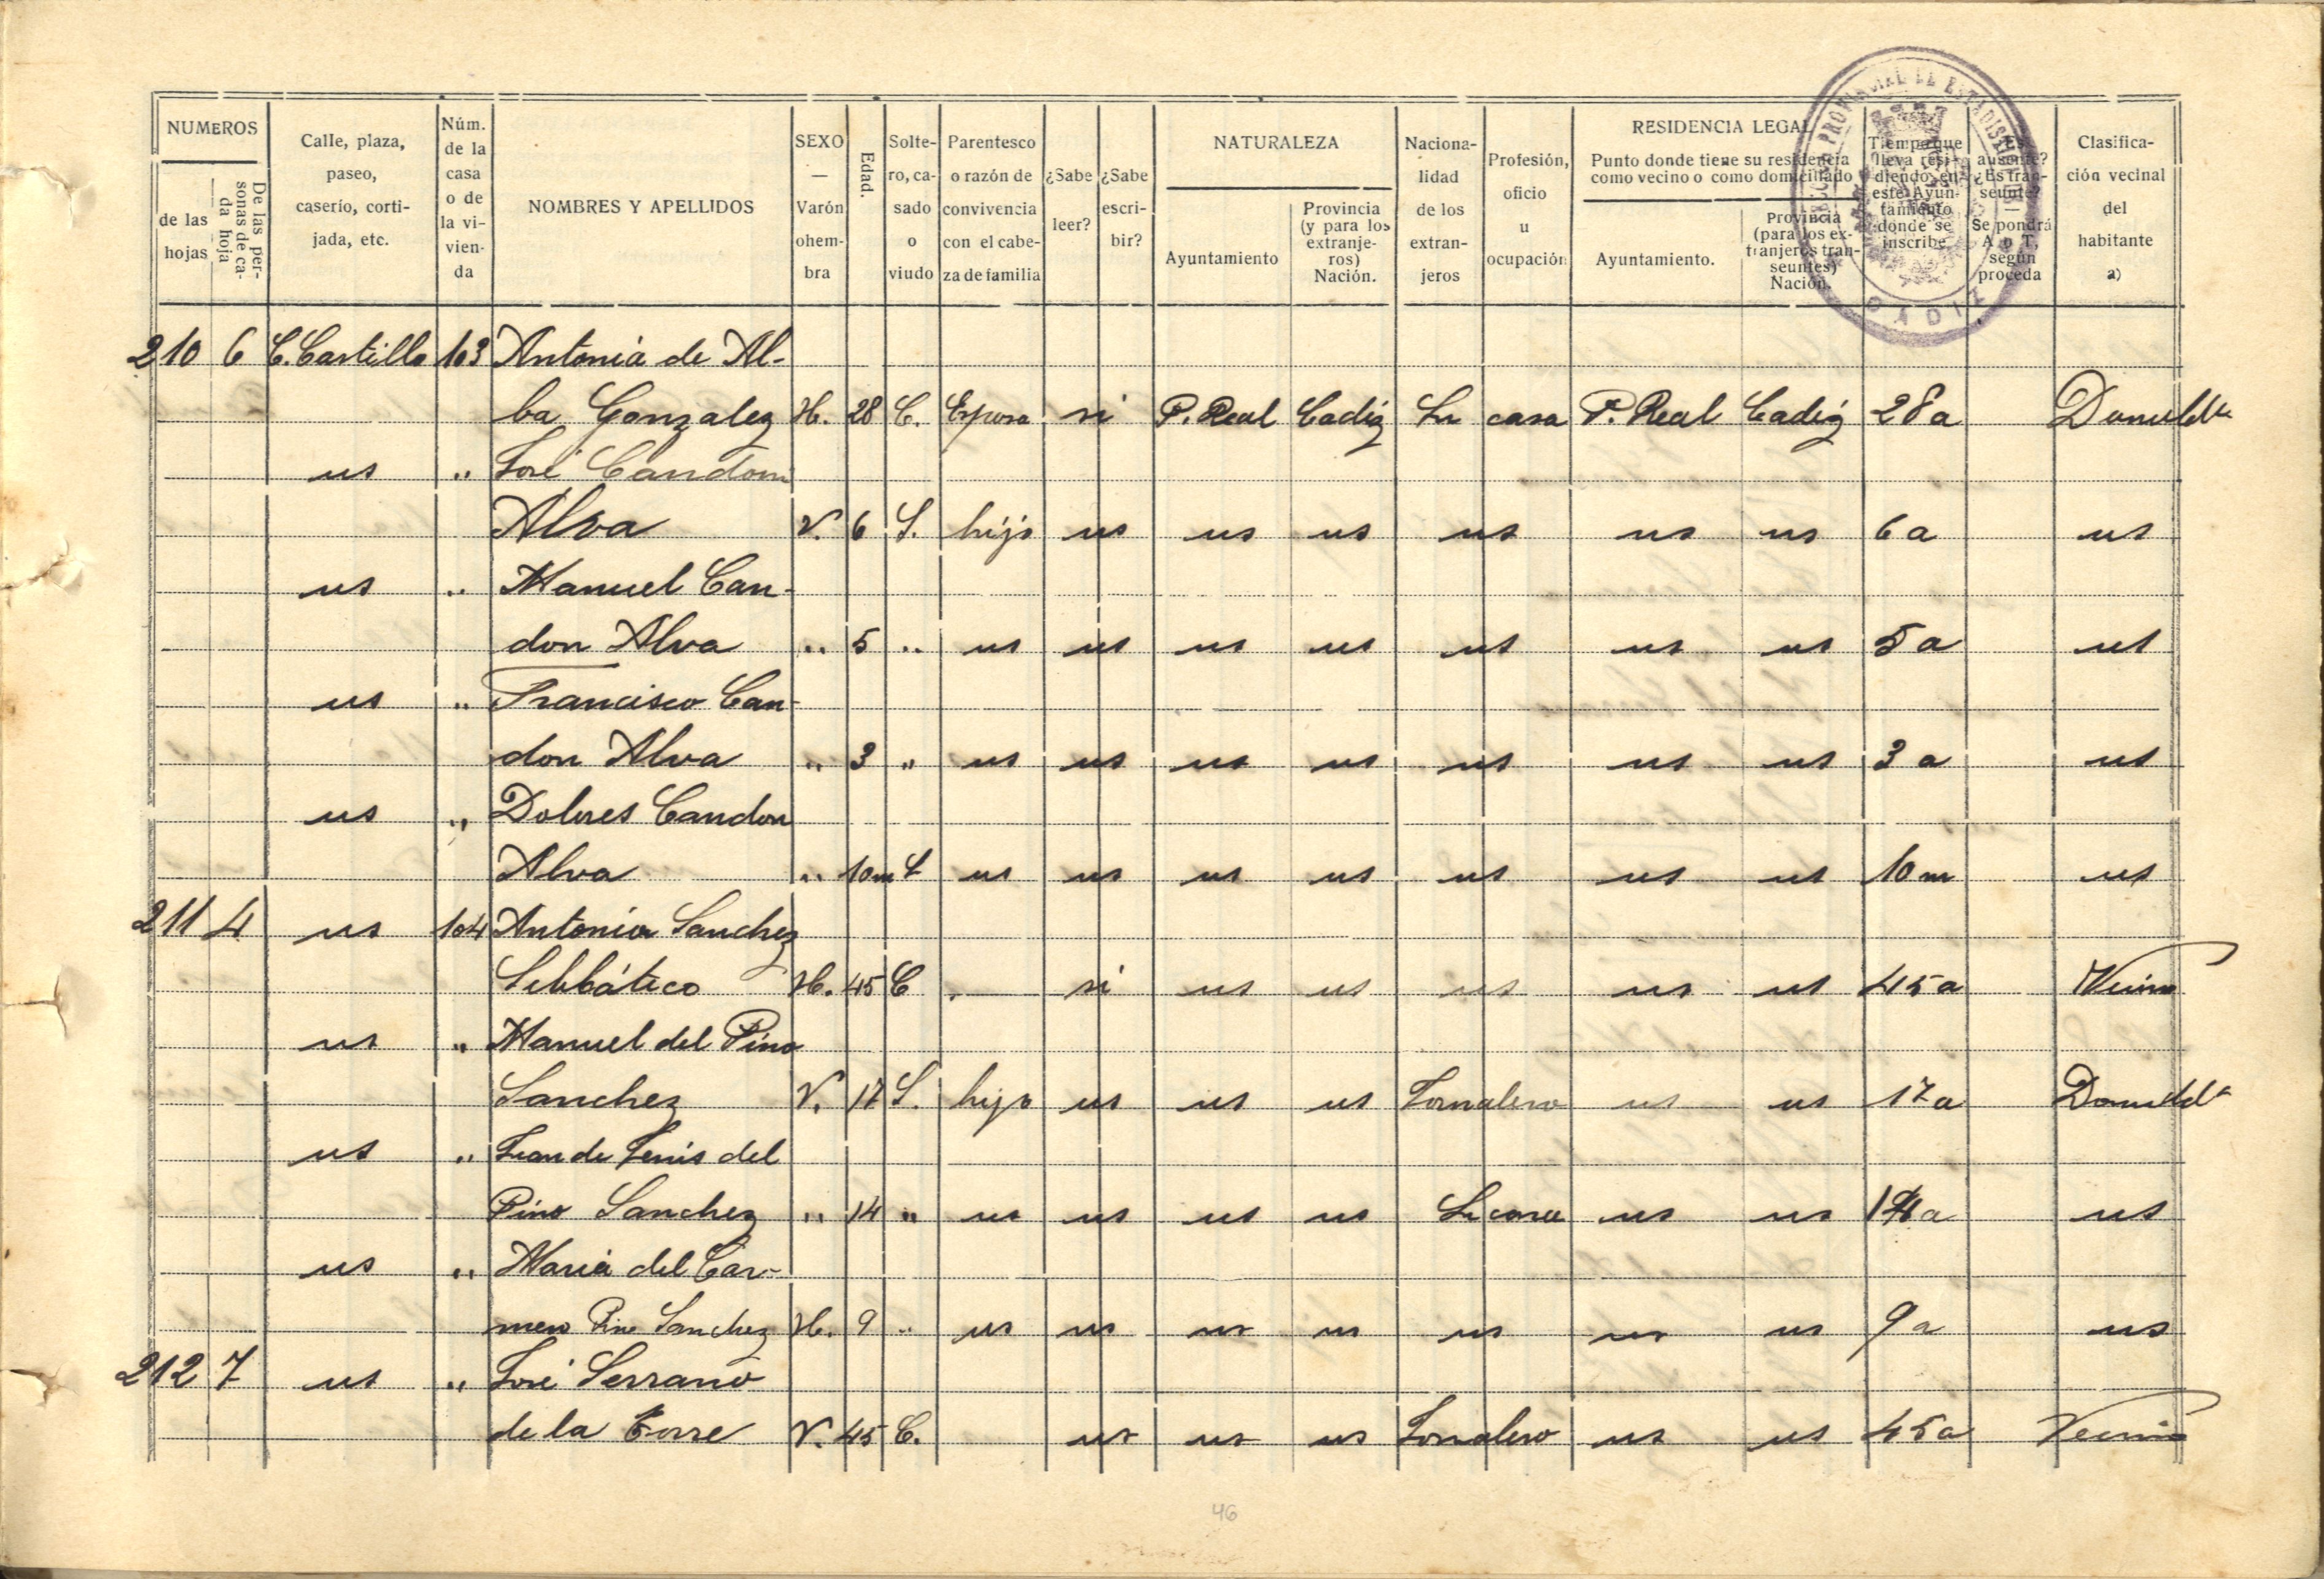 NUMEROS
de las hojas
De las personas de cada hoja
Calle, plaza, paseo, caserío, cortijada, etc.
Núm. de la casa o de la vivienda
NOMBRES Y APELLIDOS
SEXO — Varón o hembra
Edad.
Soltero, casado o viudo
Parentesco o razón de convivencia con el cabeza de familia
¿Sabe leer?
¿Sabe escribir?
NATURALEZA
Ayuntamiento
Provincia (y para los extranjeros) Nación.
Nacionalidad de los extranjeros
Profesión, oficio u ocupación
RESIDENCIA LEGAL
Punto donde tiene su residencia como vecino o como domiciliado
Ayuntamiento.
Provincia (para los extranjeros transeuntes) Nación.
Tiempo que lleva residiendo en este Ayuntamiento donde se inscribe
¿Es ausente? ¿Es transeunte? — Se pondrá A o T, según proceda
Clasificación vecinal del habitante a)
PROVINCIAL DE ESTADISTICA
CADIZ
210 6 C. Castillo 103 Antonia de Al-
ba Gonzalez H. 28 C. Esposa si P. Real Cadiz Su casa P. Real Cadiz 28 a
us " José Candon
Alva V. 6 S. hijo us us us us us us 6 a us
us " Manuel Can-
don Alva " 5 " us us us us us us us 5 a us
us " Francisco Can-
don Alva " 3 " us us us us us us us 3 a us
us " Dolores Candon
Alva " 10 m S us us us us us us us 10 m us
211 4 us 104 Antonia Sanchez
H. 45 C . — si us us us us us 45 a Vecino
us " Manuel del Pino
Sanchez V. 17 S. hijo us us us Jornalero us us 17 a
us " Juan de del
Pino Sanchez " 14 " us us us us Su casa us us 14 a us
us " Maria del Car-
men Pino Sanchez H. 9 " us us us us us us us 9 a us
212 7 us " José Serrano
de la Torre V. 45 C. us us us Jornalero us us 45 a Vecino
46